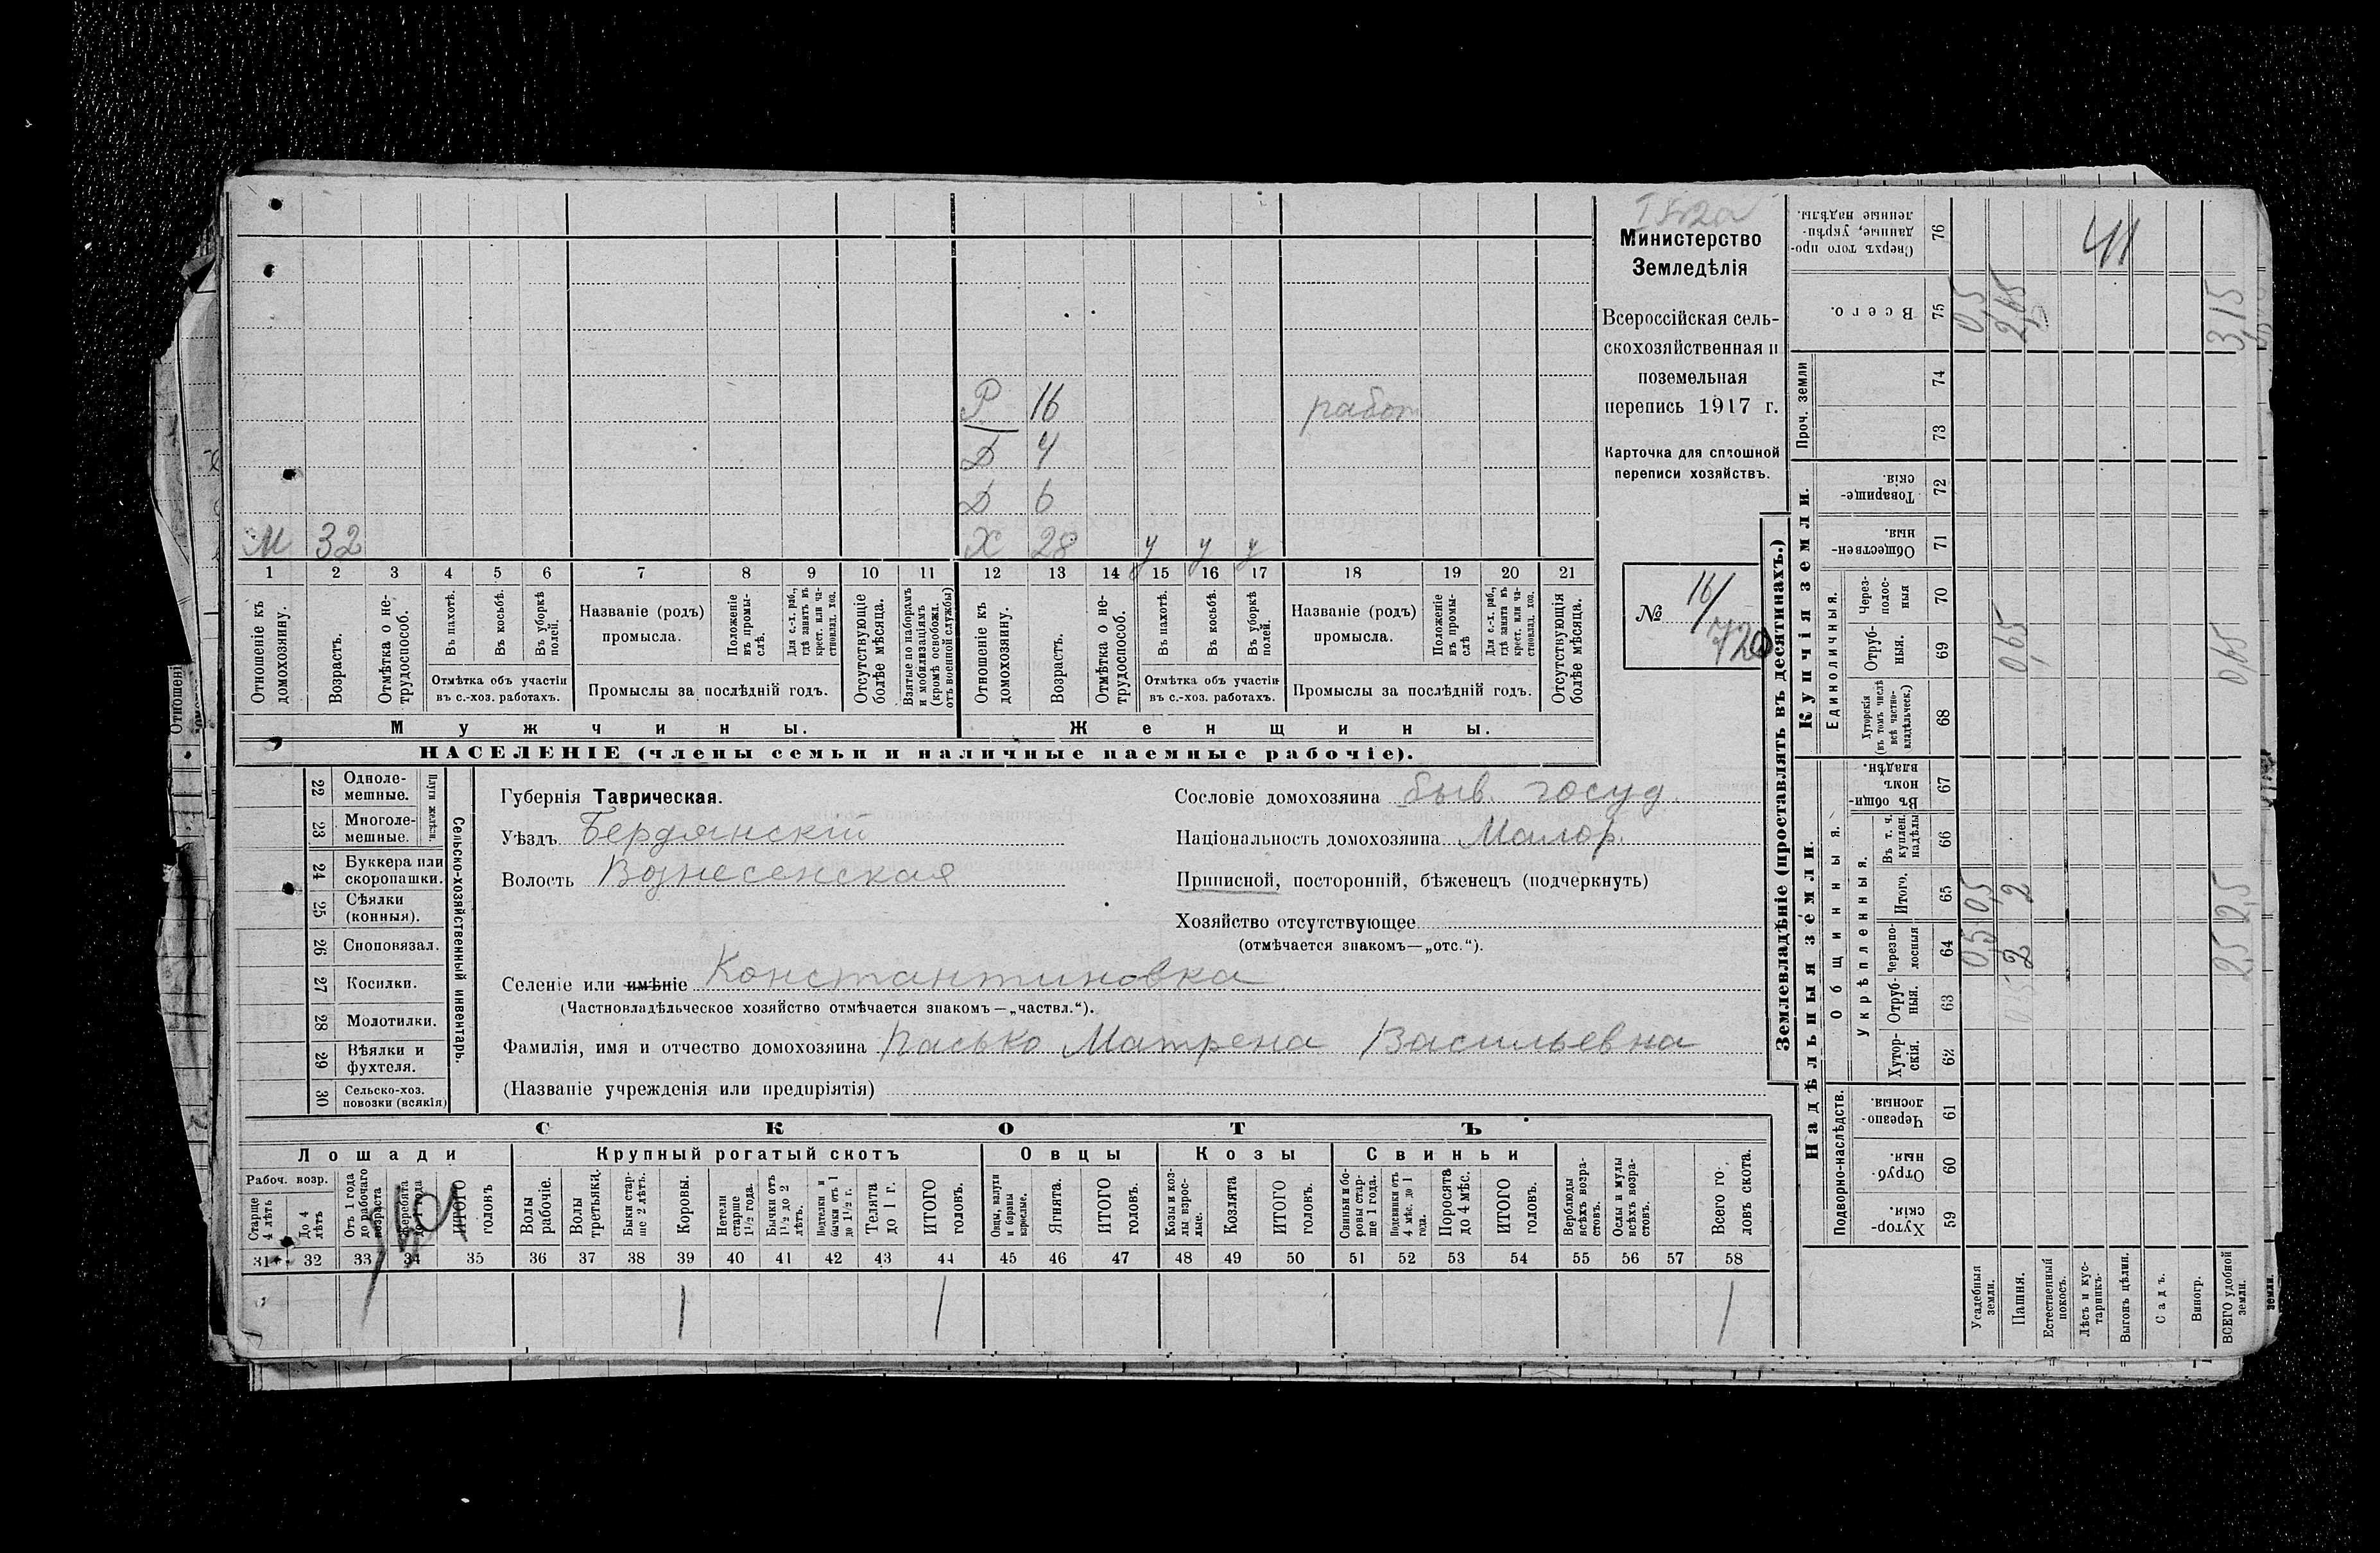 Министерство
Земледѣлія
Всероссійская сель-
скохозяйственная и
поземельная
перепись 1917 г.
Карточка для сплошной
переписи хозяйствъ.
№ 16/
720
Р 16 работ
Д 4
Д 6
М 32 Х 28 у у у
1 2 3 4 5 6 7 8 9 10 11 12 13 14 15 16 17 18 19 20 21
Отношеніе къ домохозяину.
Возрастъ.
Отмѣтка о не-трудоспособ.
Въ пахотѣ.
Въ косьбѣ.
Въ уборкѣ полей.
Отмѣтка объ участіи
въ с.-хоз. работахъ.
Названіе (родъ)
промысла.
Положеніе въ промы-слѣ.
Для с.-х. раб., гдѣ занятъ въ крест. или ча-стновлад. хоз.
Промыслы за послѣдній годъ.
Отсутствующіе болѣе мѣсяца.
Взятые по наборамъ и мобилизаціямъ (кромѣ освобожд. отъ военной службы)
Отношеніе къ домохозяину.
Возрастъ.
Отмѣтка о не-трудоспособ.
Въ пахотѣ.
Въ косьбѣ.
Въ уборкѣ полей.
Отмѣтка объ участіи
въ с.-хоз. работахъ.
Названіе (родъ)
промысла.
Положеніе въ промы-слѣ
Для с.-х. раб., гдѣ занята въ крест. или ча-стновлад. хоз.
Промыслы за послѣдній годъ.
Отсутствующія болѣе мѣсяца.
Мужчины. Женщины.
НАСЕЛЕНІЕ (члены семьи и наличные наемные рабочіе).
Сельско-хозяйственный инвентарь.
Плуги желѣзн.
22 Одноле-мешные.
23 Многоле-мешные.
24 Буккера или скоропашки.
25 Сѣялки (конныя).
26 Сноповязал.
27 Косилки.
28 Молотилки.
29 Вѣялки и фухтеля.
30 Сельско-хоз. повозки (всякія)
Губернія Таврическая.
Уѣздъ Бердянскій
Волость Вознесенская
Сословіе домохозяина быв. госуд.
Національность домохозяина Малор.
Приписной, посторонній, бѣженецъ (подчеркнуть)
Хозяйство отсутствующее
(отмѣчается знакомъ—„отс.“).
Селеніе или имѣніе Константиновка
(Частновладѣльческое хозяйство отмѣчается знакомъ—„частвл.“).
Фамилія, имя и отчество домохозяина Пасько Матрена Васильевна
(Названіе учрежденія или предпріятія)
СКОТЪ
Лошади Крупный рогатый скотъ Овцы Козы Свиньи
Рабоч. возр.
Старше 4 лѣтъ
До 4 лѣтъ
Отъ 1 года до рабочаго возраста
Жеребята до 1 года
ИТОГО головъ
Волы рабочіе.
Волы третьяки.
Быки стар-ше 2 лѣтъ.
Коровы.
Нетели старше 1½ года.
Бычки отъ 1½ до 2 лѣтъ.
Подтелки и бычки отъ 1 до 1½ г.
Телята до 1 г.
ИТОГО головъ.
Овцы, валухи и бараны взрослые.
Ягнята.
ИТОГО головъ.
Козы и коз-лы взрос-лые.
Козлята
ИТОГО головъ.
Свиньи и бо-ровы стар-ше 1 года.
Подсвинки отъ 4 мѣс. до 1 года.
Поросята до 4 мѣс.
ИТОГО головъ.
Верблюды всѣхъ возра-стовъ.
Ослы и мулы всѣхъ возра-стовъ.
Всего го-ловъ скота.
31 32 33 34 35 36 37 38 39 40 41 42 43 44 45 46 47 48 49 50 51 52 53 54 55 56 57 58
1 1 1
Землевладѣніе (проставлять въ десятинахъ.)
Надѣльныя земли. Купчія земли. Проч. земли
Подворно-наслѣдств.
Общинныя.
Укрѣпленныя.
Единоличныя.
59 Хутор-скія.
60 Отруб-ныя.
61 Черезпо-лосныя.
62 Хутор-скія.
63 Отруб-ныя.
64 Черезпо-лосныя
65 Итого.
66 Въ т. ч. куплен. надѣлы
67 Въ общин-номъ владѣн.
68 Хуторскія (въ томъ числѣ всѣ частно-владѣльческ.)
69 Отруб-ныя.
70 Через-полос-ныя
71 Обществен-ныя.
72 Товарище-скія.
73
74
75 Всего.
76 Сверхъ того про-данные, укрѣп-ленные надѣлы.
Усадебныя земли. 0,5 0,5 0,5
Пашня. 2 2 0,65 2,65
Естественный покосъ.
Лѣсъ и кус-тарникъ.
Выгонъ цѣлин.
Садъ.
Виногр.
ВСЕГО удобной земли. 2,5 2,5 0,65 3,15
41